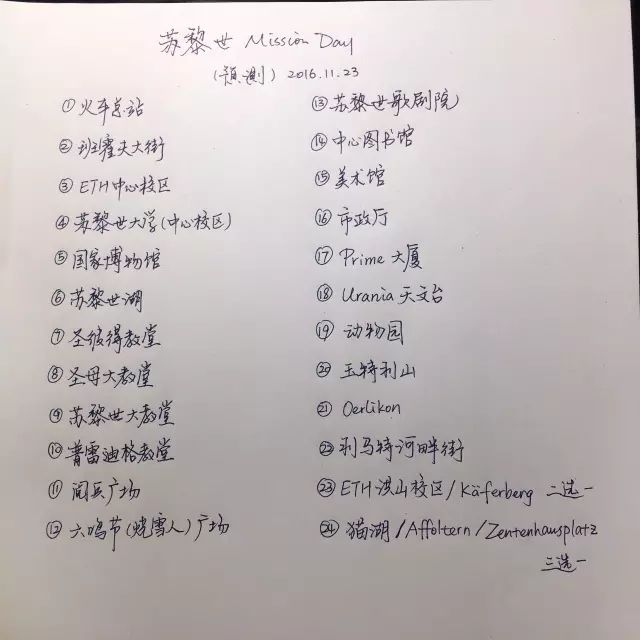 苏黎世 Mission Day
(预测) 2016.11.23
① 火车总站
② 班霍夫大街
③ ETH中心校区
④ 苏黎世大学(中心校区)
⑤ 国家博物馆
⑥ 苏黎世湖
⑦ 圣彼得教堂
⑧ 圣母大教堂
⑨ 苏黎世大教堂
⑩ 普雷迪格教堂
⑪ 阅兵广场
⑫ 六鸣节(烧雪人)广场
⑬ 苏黎世歌剧院
⑭ 中心图书馆
⑮ 美术馆
⑯ 市政厅
⑰ Prime 大厦
⑱ Urania 天文台
⑲ 动物园
⑳ 玉特利山
㉑ Oerlikon
㉒ 利马特河畔街
㉓ ETH 洪山校区/Käferberg 二选一
㉔ 猫湖/Affoltern/Zentenhausplatz
三选一